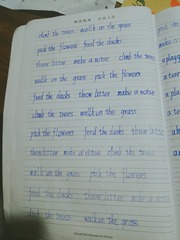 climb the trees walk on the grass
pick the flowers feed the ducks
throw litter make a noise climb the trees
walk on the grass pick the flowers
feed the ducks throw litter make a noise
climb the trees walk on the grass
pick the flowers feed the ducks throw litter
throw litter make a noise climb the trees
walk on the grass pick the flowers
feed the ducks throw litter make a noise
climb the trees walk on the grass